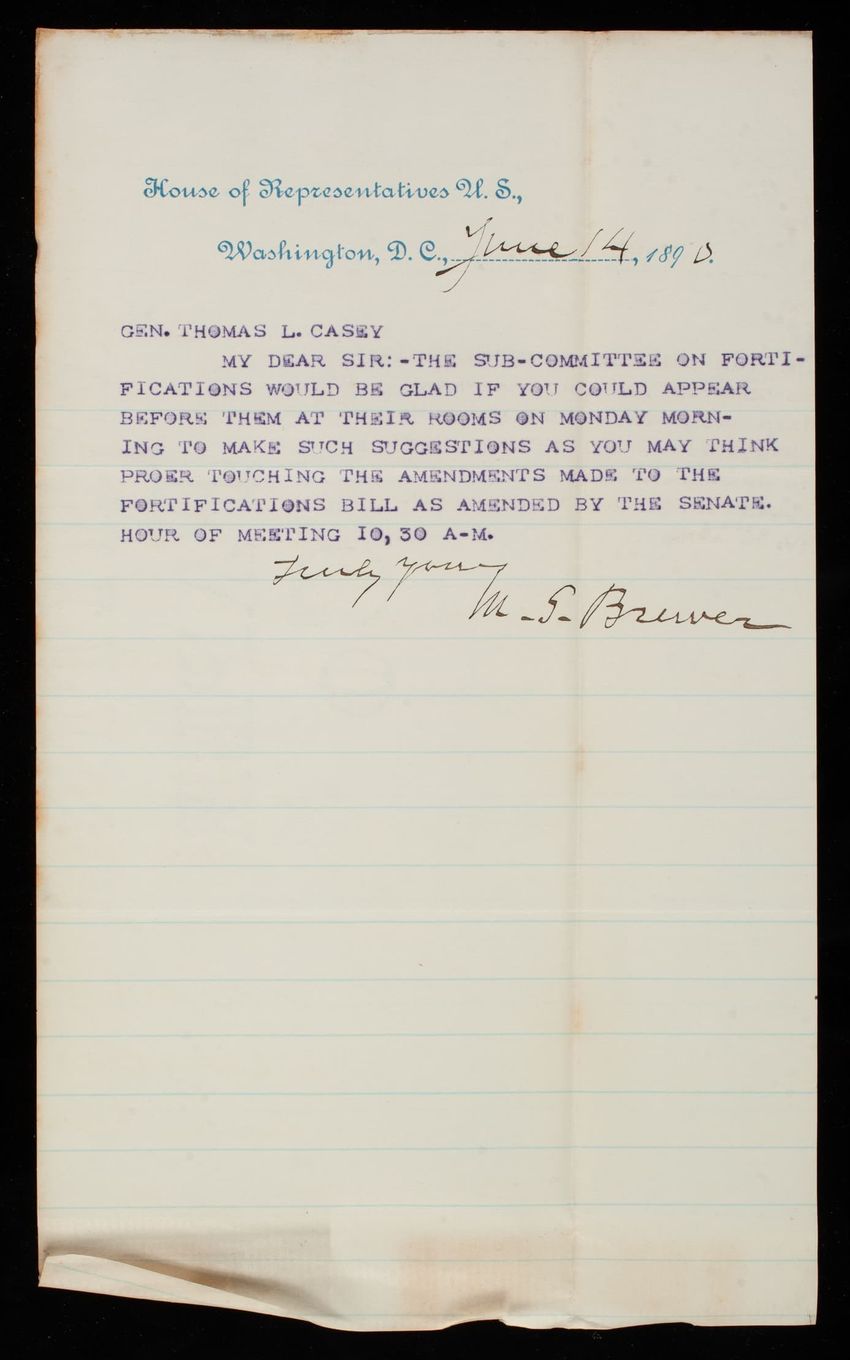 House of Representatives U. S.,
Washington, D. C., June 14, 1890.
GEN. THOMAS L. CASEY
MY DEAR SIR:-THE SUB-COMMITTEE ON FORTI-
FICATIONS WOULD BE GLAD IF YOU COULD APPEAR
BEFORE THEM AT THEIR ROOMS ON MONDAY MORN-
ING TO MAKE SUCH SUGGESTIONS AS YOU MAY THINK
PROER TOUCHING THE AMENDMENTS MADE TO THE
FORTIFICATIONS BILL AS AMENDED BY THE SENATE.
HOUR OF MEETING 10,30 A-M.
Truly yours
M. S. Brewer